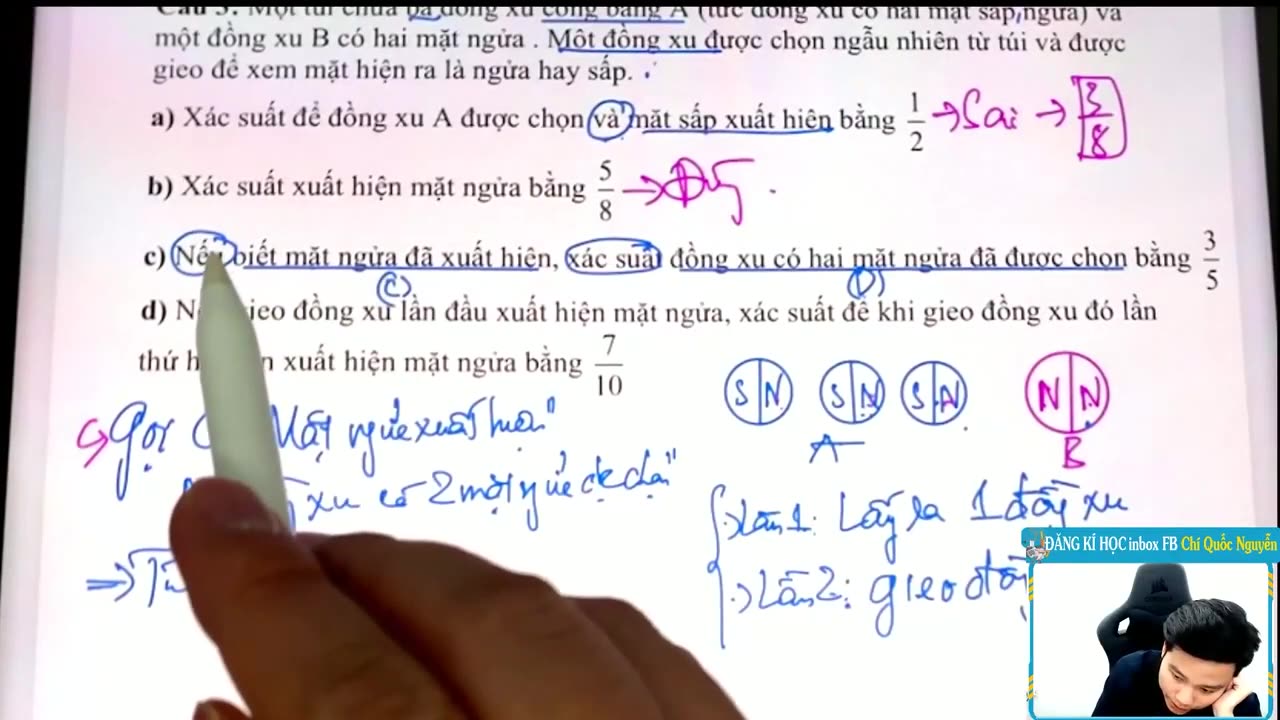 Câu 3. Một túi chứa ba đồng xu công bằng A (tức đồng xu có hai mặt sấp,ngửa) và
một đồng xu B có hai mặt ngửa . Một đồng xu được chọn ngẫu nhiên từ túi và được
gieo để xem mặt hiện ra là ngửa hay sấp.
a) Xác suất để đồng xu A được chọn và mặt sấp xuất hiện bằng 1/2 → Sai → 3/8
b) Xác suất xuất hiện mặt ngửa bằng 5/8 → Đúng
c) Nếu biết mặt ngửa đã xuất hiện, xác suất đồng xu có hai mặt ngửa đã được chọn bằng 3/5
(C) (D)
d) ieo đồng xu lần đầu xuất hiện mặt ngửa, xác suất để khi gieo đồng xu đó lần
thứ xuất hiện mặt ngửa bằng 7/10
S N S N S N N N
A B
Gọi Mặt ngửa xuất hiện"
xu có 2 mặt ngửa
Lần 1: Lấy ra 1 đồng xu
Lần 2: gieo
ĐĂNG KÍ HỌC inbox FB Chí Quốc Nguyễn